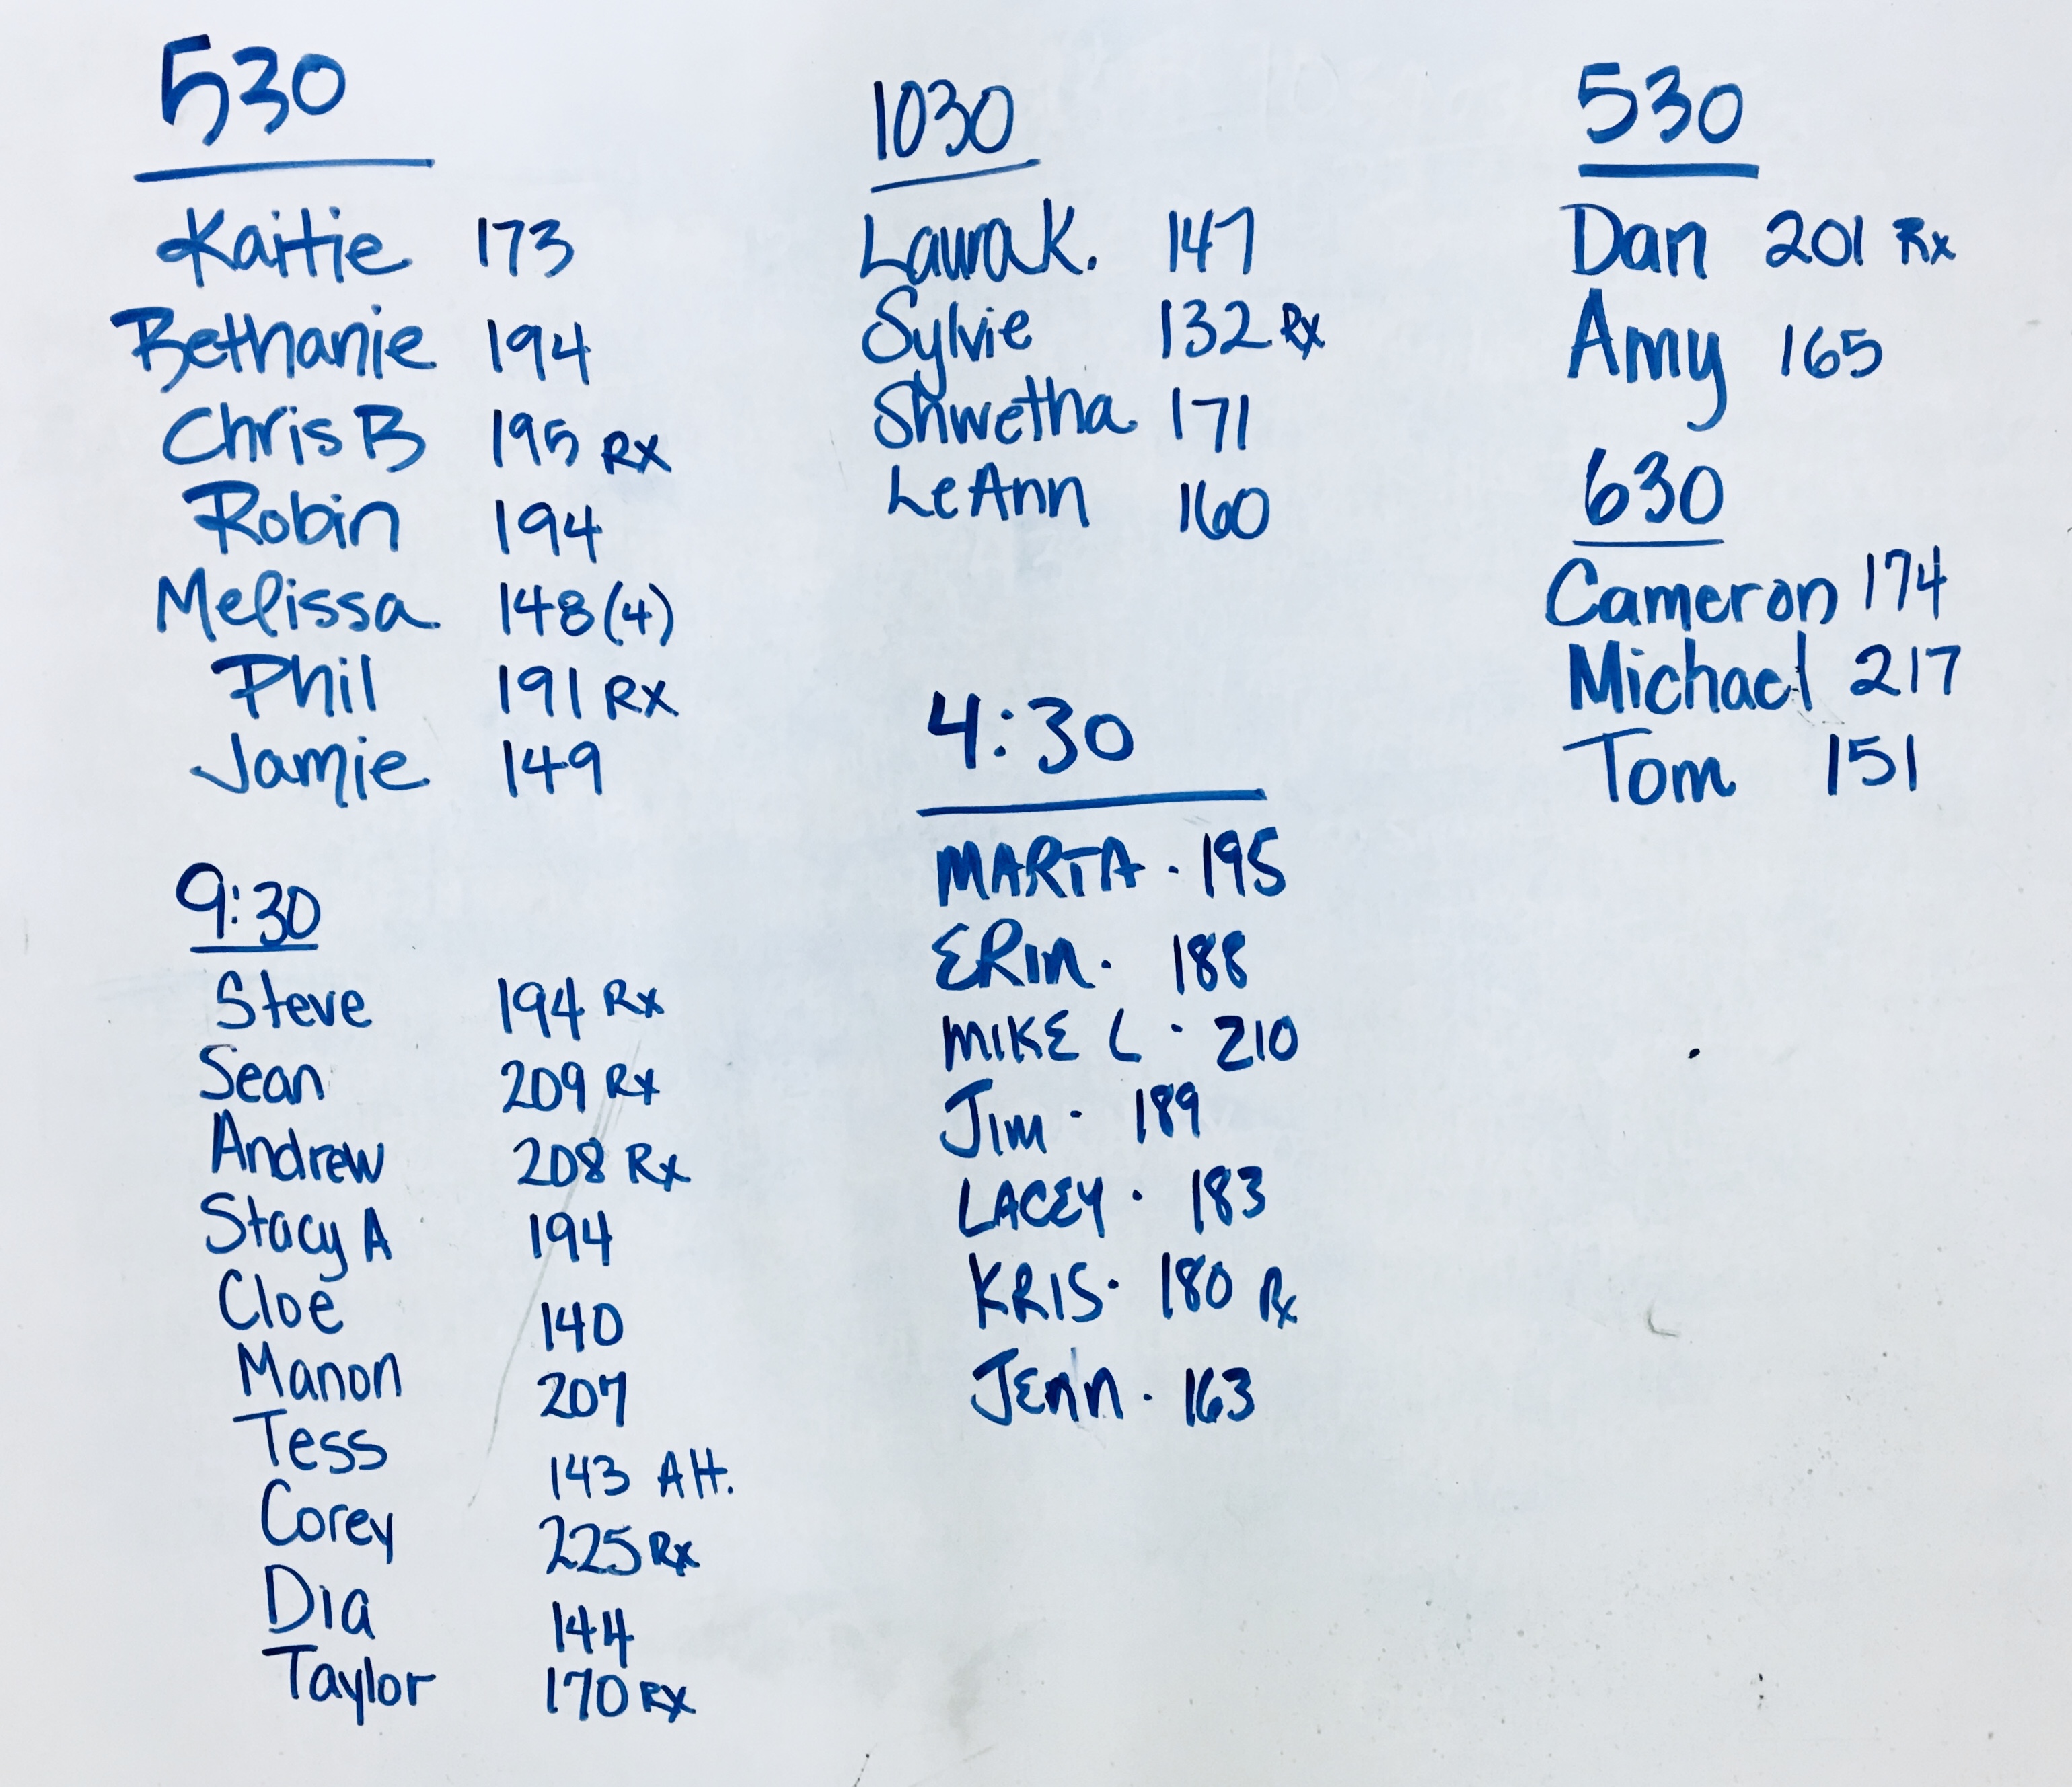 530
Kaitie 173
Bethanie 194
Chris B 195 Rx
Robin 194
Melissa 148(4)
Phil 191 Rx
Jamie 149
9:30
Steve 194 Rx
Sean 209 Rx
Andrew 208 Rx
Stacy A 194
Cloe 140
Manon 207
Tess 143 Alt.
Corey 225 Rx
Dia 144
Taylor 170 Rx
1030
Laura K. 147
Sylvie 132 Rx
Shwetha 171
LeAnn 160
4:30
MARTA · 195
ERIN · 188
MIKE C · 210
JIM · 189
LACEY · 183
KRIS · 180 Rx
JENN · 163
530
Dan 201 Rx
Amy 165
630
Cameron 174
Michael 217
Tom 151